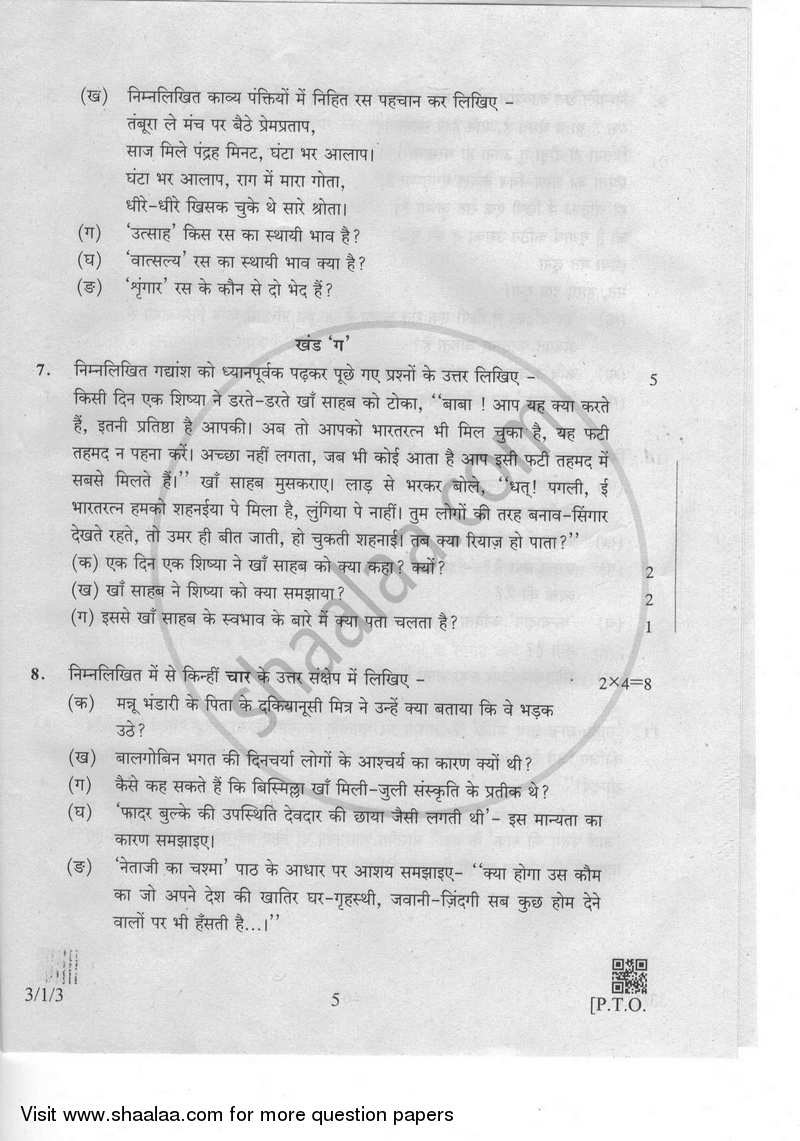 (ख) निम्नलिखित काव्य पंक्तियों में निहित रस पहचान कर लिखिए –
तंबूरा ले मंच पर बैठे प्रेमप्रताप,
साज मिले पंद्रह मिनट, घंटा भर आलाप।
घंटा भर आलाप, राग में मारा गोता,
धीरे-धीरे खिसक चुके थे सारे श्रोता।
(ग) 'उत्साह' किस रस का स्थायी भाव है?
(घ) 'वात्सल्य' रस का स्थायी भाव क्या है?
(ङ) 'शृंगार' रस के कौन से दो भेद हैं?
खंड 'ग'
7. निम्नलिखित गद्यांश को ध्यानपूर्वक पढ़कर पूछे गए प्रश्नों के उत्तर लिखिए – 5
किसी दिन एक शिष्या ने डरते-डरते खाँ साहब को टोका, "बाबा ! आप यह क्या करते
हैं, इतनी प्रतिष्ठा है आपकी। अब तो आपको भारतरत्न भी मिल चुका है, यह फटी
तहमद न पहना करें। अच्छा नहीं लगता, जब भी कोई आता है आप इसी फटी तहमद में
सबसे मिलते हैं।" खाँ साहब मुसकराए। लाड़ से भरकर बोले, "धत्! पगली, ई
भारतरत्न हमको शहनईया पे मिला है, लुंगिया पे नाहीं। तुम लोगों की तरह बनाव-सिंगार
देखते रहते, तो उमर ही बीत जाती, हो चुकती शहनाई। तब क्या रियाज़ हो पाता?"
(क) एक दिन एक शिष्या ने खाँ साहब को क्या कहा? क्यों? 2
(ख) खाँ साहब ने शिष्या को क्या समझाया? 2
(ग) इससे खाँ साहब के स्वभाव के बारे में क्या पता चलता है? 1
8. निम्नलिखित में से किन्हीं चार के उत्तर संक्षेप में लिखिए – 2×4=8
(क) मन्नू भंडारी के पिता के दकियानूसी मित्र ने उन्हें क्या बताया कि वे भड़क
उठे?
(ख) बालगोबिन भगत की दिनचर्या लोगों के आश्चर्य का कारण क्यों थी?
(ग) कैसे कह सकते हैं कि बिस्मिल्ला खाँ मिली-जुली संस्कृति के प्रतीक थे?
(घ) 'फादर बुल्के की उपस्थिति देवदार की छाया जैसी लगती थी'- इस मान्यता का
कारण समझाइए।
(ङ) 'नेताजी का चश्मा' पाठ के आधार पर आशय समझाइए- "क्या होगा उस कौम
का जो अपने देश की खातिर घर-गृहस्थी, जवानी-ज़िंदगी सब कुछ होम देने
वालों पर भी हँसती है...।"
3/1/3 5 [P.T.O.
shaalaa.com
Visit www.shaalaa.com for more question papers